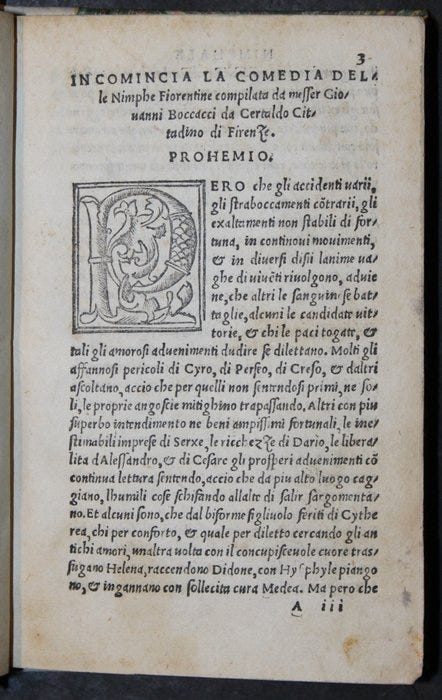 3
INCOMINCIA LA COMEDIA DEL/
le Nimphe Fiorentine compilata da messer Gio/
uanni Boccacci da Certaldo Cit/
tadino di Firenze.
PROHEMIO.
PERO che gli accidenti uarii,
gli straboccamenti cõtrarii, gli
exaltamenti non stabili di for/
tuna, in continoui mouimenti,
& in diuersi disii lanime ua/
ghe di uiuẽti riuolgono, aduie/
ne, che altri le sanguinose bat
taglie, alcuni le candidate uit/
torie, & chi le paci togate, &
tali gli amorosi aduenimenti dudire se dilettano. Molti gli
affannosi pericoli di Cyro, di Perseo, di Creso, & daltri
ascoltano, accio che per quelli non sentendosi primi, ne so/
li, le proprie angoscie mitighino trapassando. Altri con piu
superbo intendimento ne beni ampissimi fortunali, le ine/
stimabili imprese di Serxe, le ricchezze di Dario, le libera/
lita dAlessandro, & di Cesare gli prosperi aduenimenti cõ
continua lettura sentendo, accio che da piu alto luogo cag/
giano, lhumili cose schifando allalte di salir sargomenta/
no. Et alcuni sono, che dal biforme figliuolo feriti di Cythe
rea, chi per conforto, & quale per diletto cercando gli an
tichi amori, unaltra uolta con il concupisceuole cuore tras/
fugano Helena, raccendono Didone, con Hysphyle piango
no, & ingannano con sollecita cura Medea. Ma pero che
A iii